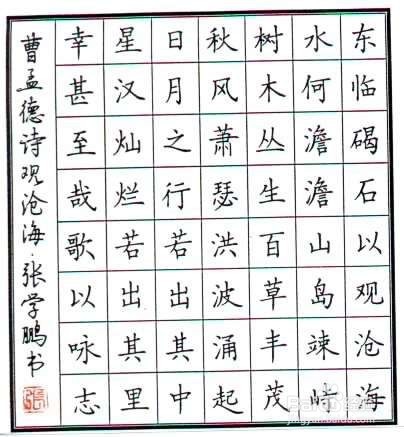 东临碣石以观沧海
水何澹澹山岛竦峙
树木丛生百草丰茂
秋风萧瑟洪波涌起
日月之行若出其中
星汉灿烂若出其里
幸甚至哉歌以咏志
曹孟德诗观沧海·张学鹏书
張